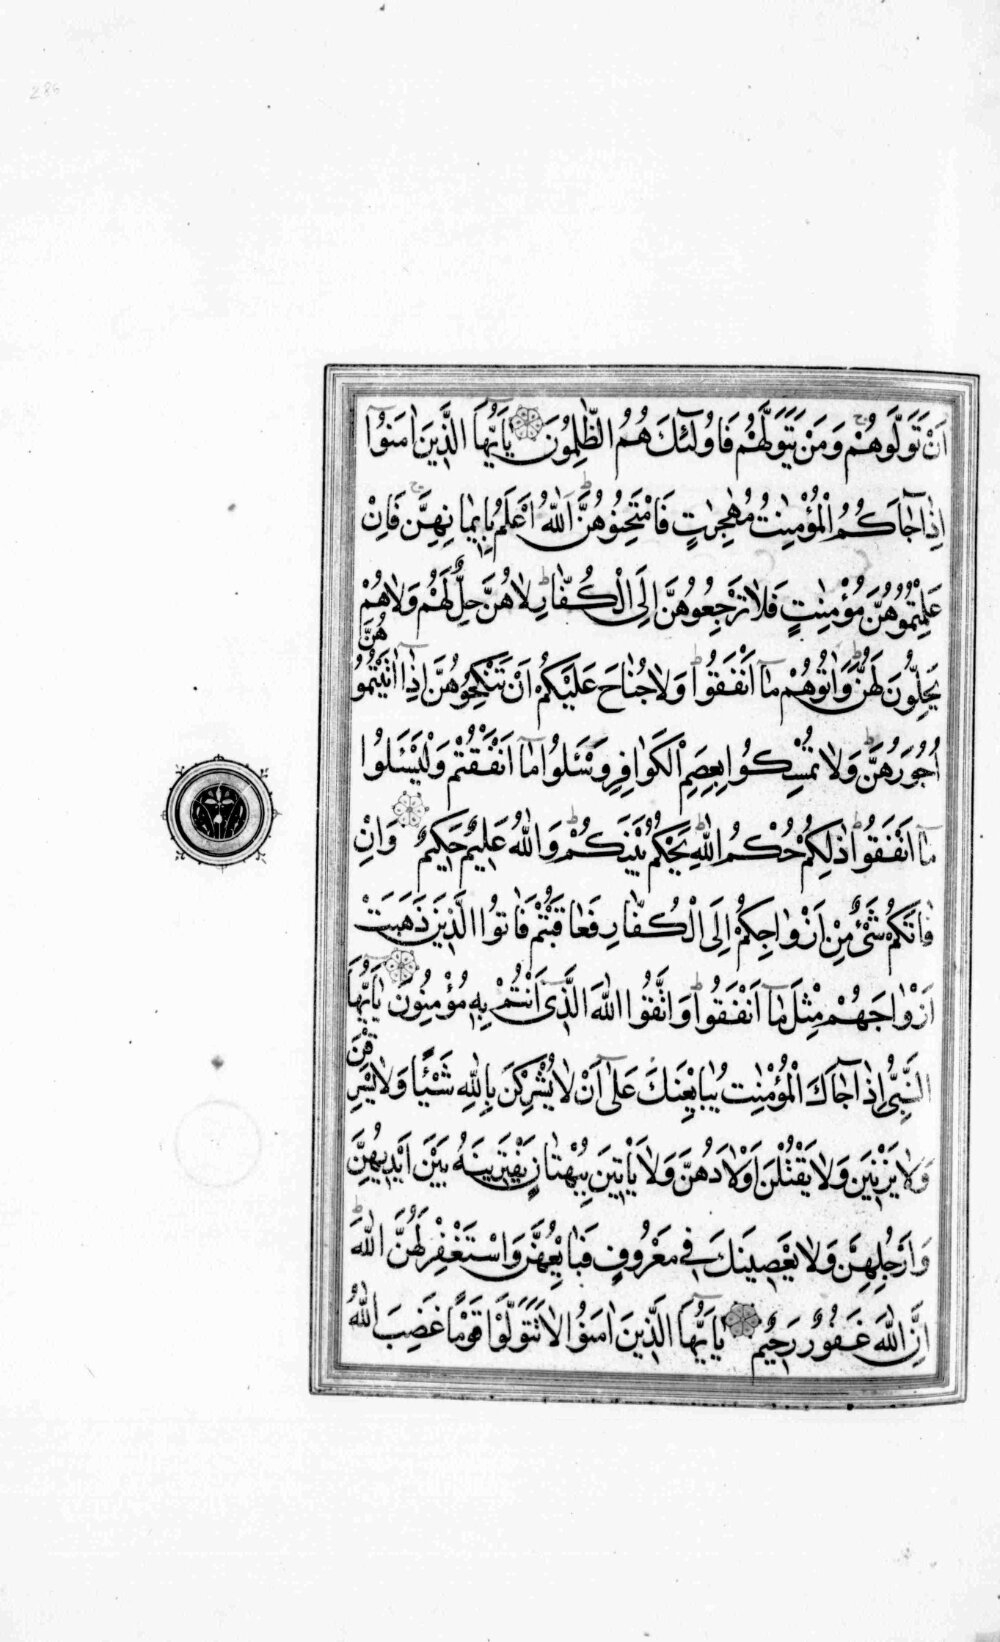 286
اَنْ تَوَلَّوْهُمْ وَمَنْ يَتَوَلَّهُمْ فَاُولٰٓئِكَ هُمُ الظّٰلِمُونَ يَآاَيُّهَا الَّذِينَ اٰمَنُوٓا
اِذَا جَآءَكُمُ الْمُؤْمِنٰتُ مُهٰجِرٰتٍ فَامْتَحِنُوهُنَّ اَللّٰهُ اَعْلَمُ بِاِيمَانِهِنَّ فَاِنْ
عَلِمْتُمُوهُنَّ مُؤْمِنٰتٍ فَلَا تَرْجِعُوهُنَّ اِلَى الْكُفَّارِ لَاهُنَّ حِلٌّ لَهُمْ وَلَاهُمْ
يَحِلُّونَ لَهُنَّ وَاٰتُوهُمْ مَآ اَنْفَقُوا وَلَا جُنَاحَ عَلَيْكُمْ اَنْ تَنْكِحُوهُنَّ اِذَآ اٰتَيْتُمُوهُنَّ
اُجُورَهُنَّ وَلَا تُمْسِكُوا بِعِصَمِ الْكَوَافِرِ وَسْـَٔلُوا مَآ اَنْفَقْتُمْ وَلْيَسْـَٔلُوا
مَآ اَنْفَقُوا ذٰلِكُمْ حُكْمُ اللّٰهِ يَحْكُمُ بَيْنَكُمْ وَاللّٰهُ عَلِيمٌ حَكِيمٌ وَاِنْ
فَاتَكُمْ شَىْءٌ مِنْ اَزْوَاجِكُمْ اِلَى الْكُفَّارِ فَعَاقَبْتُمْ فَاٰتُوا الَّذِينَ ذَهَبَتْ
اَزْوَاجُهُمْ مِثْلَ مَآ اَنْفَقُوا وَاتَّقُوا اللّٰهَ الَّذِىٓ اَنْتُمْ بِهِ مُؤْمِنُونَ يَآاَيُّهَا
النَّبِىُّ اِذَا جَآءَكَ الْمُؤْمِنٰتُ يُبَايِعْنَكَ عَلٰٓى اَنْ لَا يُشْرِكْنَ بِاللّٰهِ شَيْئًا وَلَا يَسْرِقْنَ
وَلَا يَزْنِينَ وَلَا يَقْتُلْنَ اَوْلَادَهُنَّ وَلَا يَاْتِينَ بِبُهْتَانٍ يَفْتَرِينَهُ بَيْنَ اَيْدِيهِنَّ
وَاَرْجُلِهِنَّ وَلَا يَعْصِينَكَ فِى مَعْرُوفٍ فَبَايِعْهُنَّ وَاسْتَغْفِرْ لَهُنَّ اللّٰهَ
اِنَّ اللّٰهَ غَفُورٌ رَحِيمٌ يَآاَيُّهَا الَّذِينَ اٰمَنُوا لَا تَتَوَلَّوْا قَوْمًا غَضِبَ اللّٰهُ